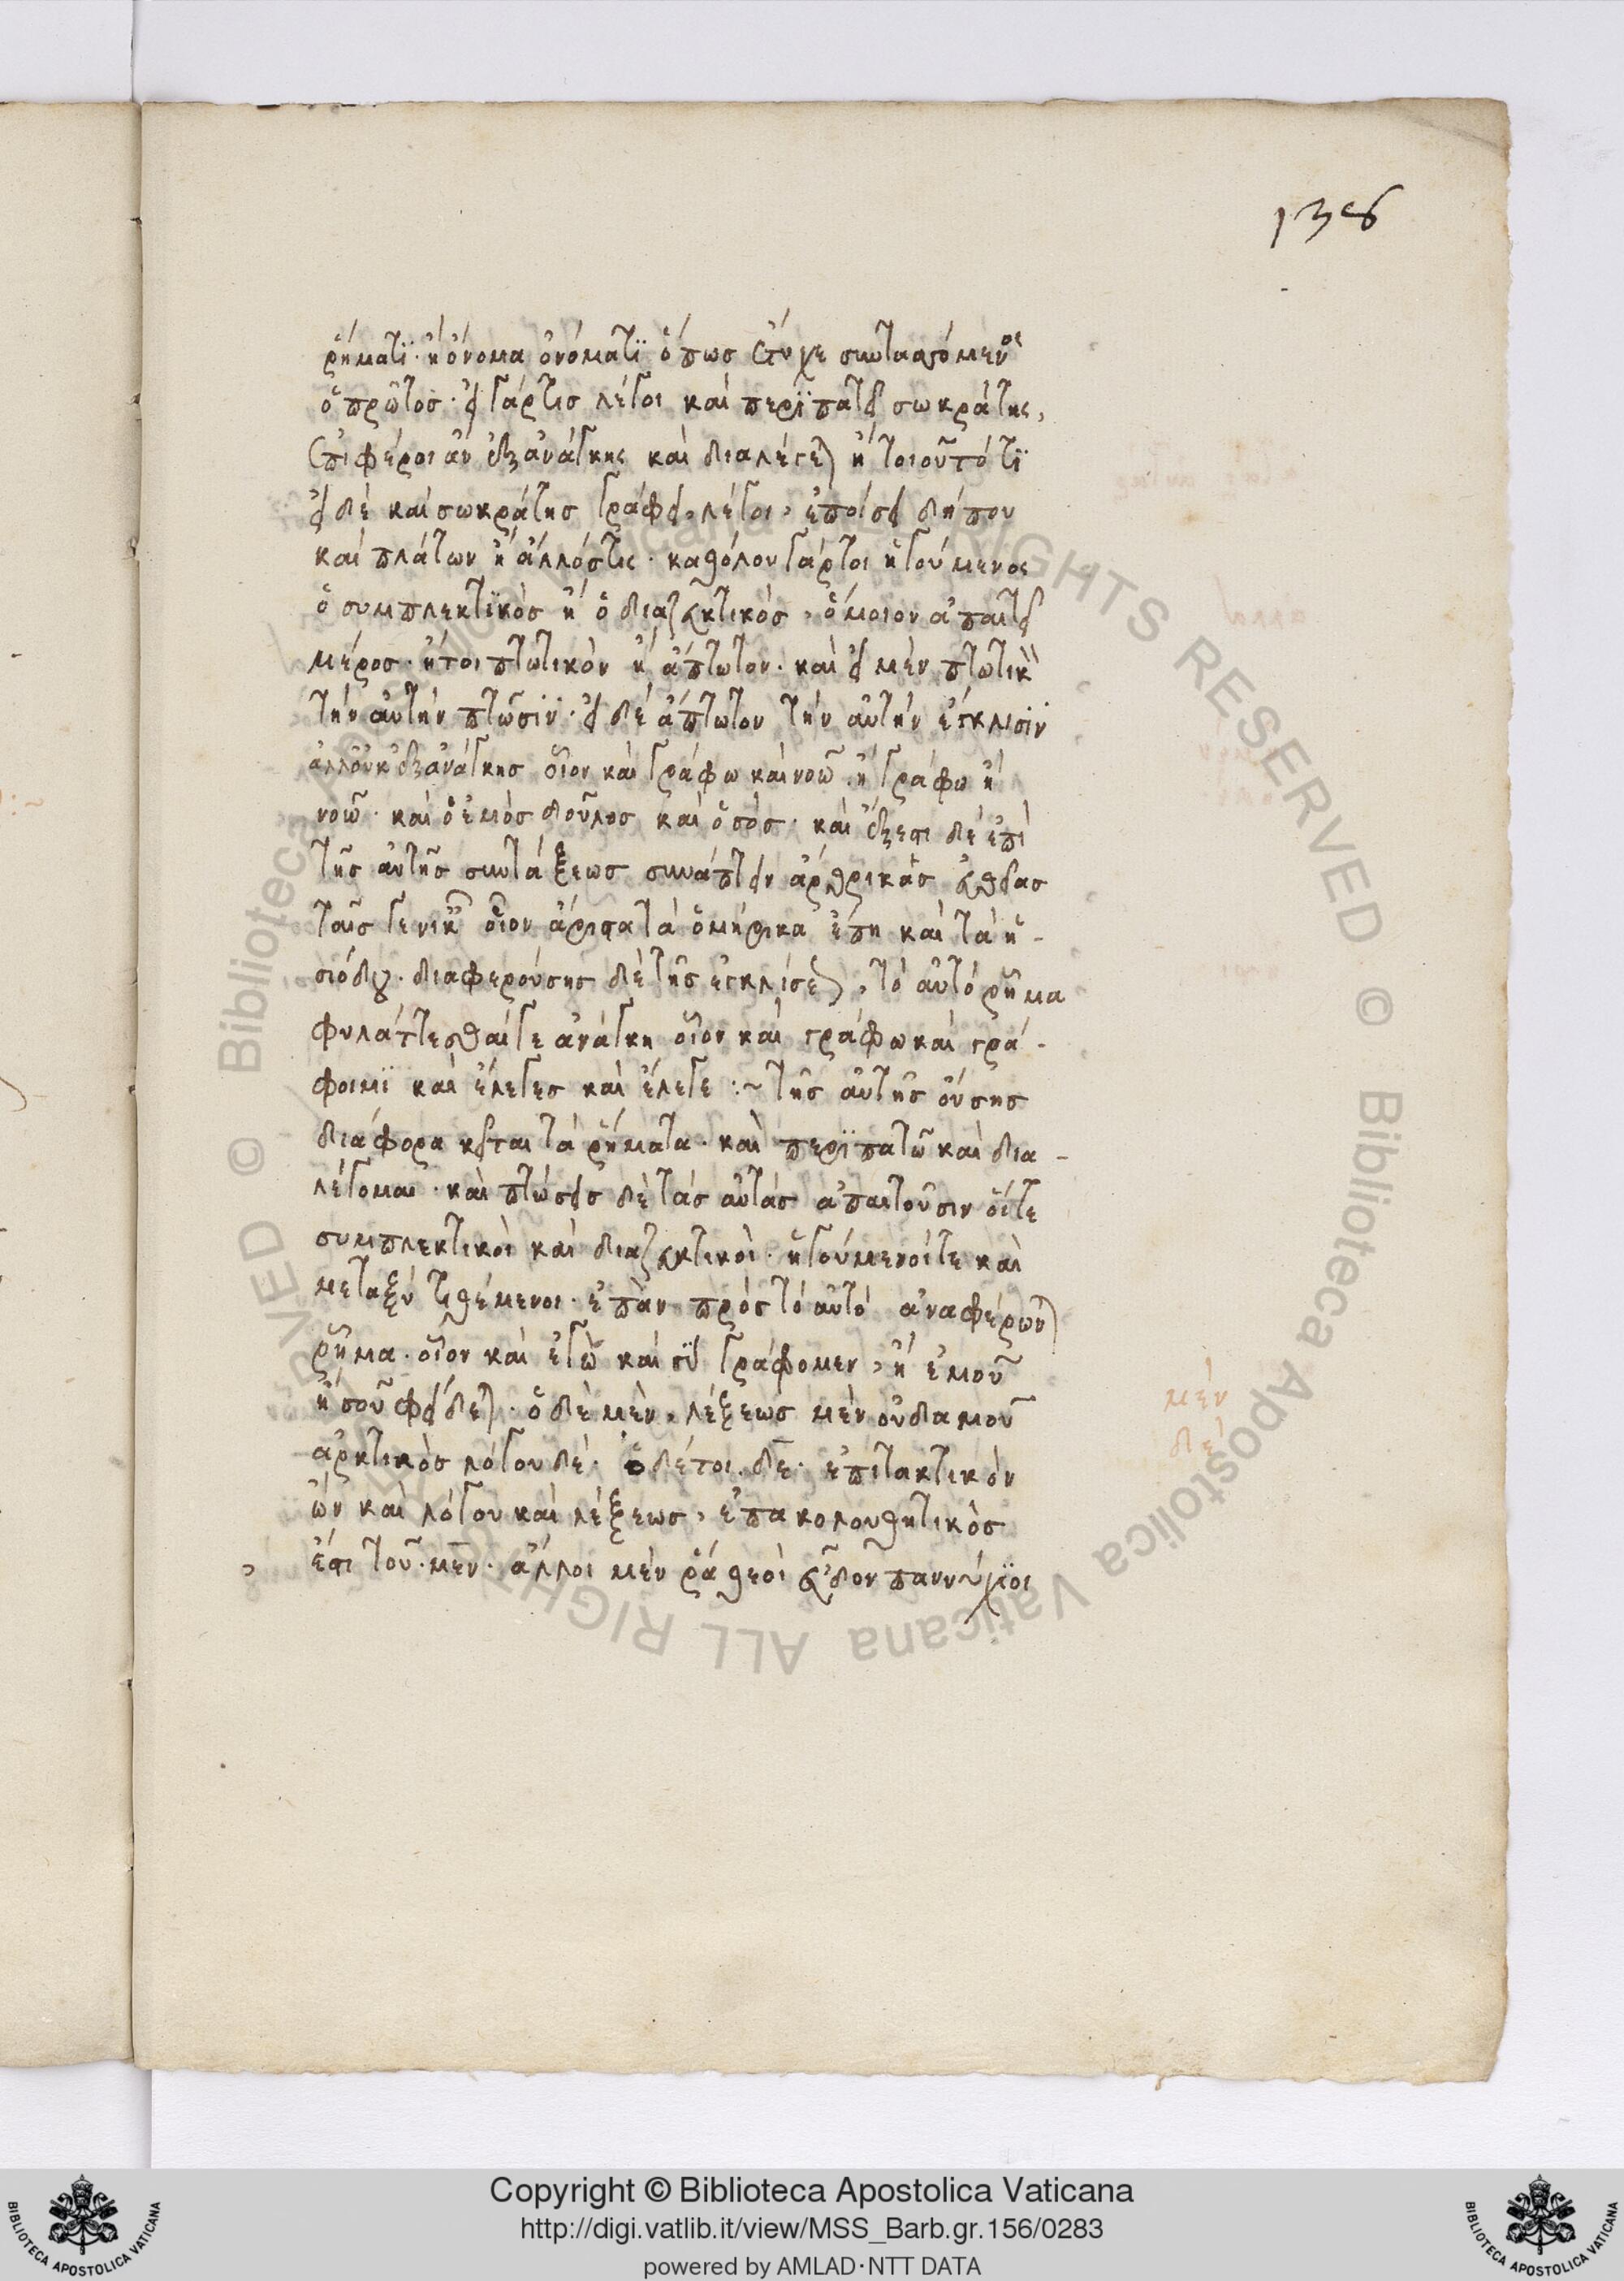 136
ῥήματϊ· ἢ ὄνομα ὀνόματϊ ὅπως ἔτυχε συντασσόμενος
ὁ πρῶτος· εἰ γάρ τις λέγοι καὶ περϊπατεῖ σωκράτης,
ἐπιφέροι ἂν ἐξανάγκης καὶ διαλέγεται ἢ τοιοῦτό τϊ
εἰ δὲ καὶ σωκράτης γράφει, λέγοι, ἐποίσει δήπου
καὶ πλάτων ἢ ἄλλός τις· καθόλου γάρ τοι ἡγούμενος
ὁ συμπλεκτϊκὸς ἢ ὁ διαζευκτικὸς, ὅμοιον ἀπαιτεῖ
μέρος· ἤτοι πτωτικὸν ἢ ἄπτωτον· καὶ εἰ μὲν πτωτικὸν
τὴν αὐτὴν πτῶσιν· εἰ δὲ ἄπτωτον τὴν αὐτὴν ἔγκλισιν
ἀλλοὐκ ἐξανάγκης οἷον καὶ γράφω καὶ νοῶ· ἢ γράφω ἢ
νοῶ· καὶ ὁ ἐμὸς δοῦλος καὶ ὁ σός· καὶ ἔξεστι δὲ ἐπὶ
τῆς αὐτῆς συντάξεως συνάπτειν ἀρθρικὰς εὐθείας
ταῖς γενικαῖς οἷον ἄριστα τὰ ὁμήρικα ἔπη καὶ τὰ ἡ-
σιόδου· διαφερούσης δὲ τῆς ἐγκλίσεως, τὸ αὐτὸ ῥῆμα
φυλάττεσθαί γε ἀνάγκη οἷον καὶ γράφω καὶ γρά-
φοιμϊ καὶ ἔλεγες καὶ ἔλεγε :~ τῆς αὐτῆς οὔσης
διάφορα κεῖται τὰ ῥήματα· καὶ περϊπατῶ καὶ δια-
λέγομαι· καὶ πτώσεις δὲ τὰς αὐτὰς ἀπαιτοῦσιν οἵτε
συμπλεκτικοὶ καὶ διαζευκτικοὶ· ἡγούμενοί τε καὶ
μεταξὺ τιθέμενοι· ἐπὰν πρὸς τὸ αὐτὸ ἀναφέρωνται
ῥῆμα· οἷον καὶ ἐγὼ καὶ σϋ γράφομεν, ἢ ἐμοῦ
ἢ σοῦ φείδεται· ὁ δὲ μὲν, λέξεως μὲν οὐδαμοῦ
ἀρκτικὸς λόγου δέ· ὁ δέ τοι δέ· ἐπιτακτικὸν
ὢν καὶ λόγου καὶ λέξεως, ἐπακολουθητικὸς
ἐστι τοῦ· μὲν· ἄλλοι μέν ῥα θεοὶ εὗδον παννύχϊοι
μέν
δέ
Copyright © Biblioteca Apostolica Vaticana
http://digi.vatlib.it/view/MSS_Barb.gr.156/0283
powered by AMLAD·NTT DATA